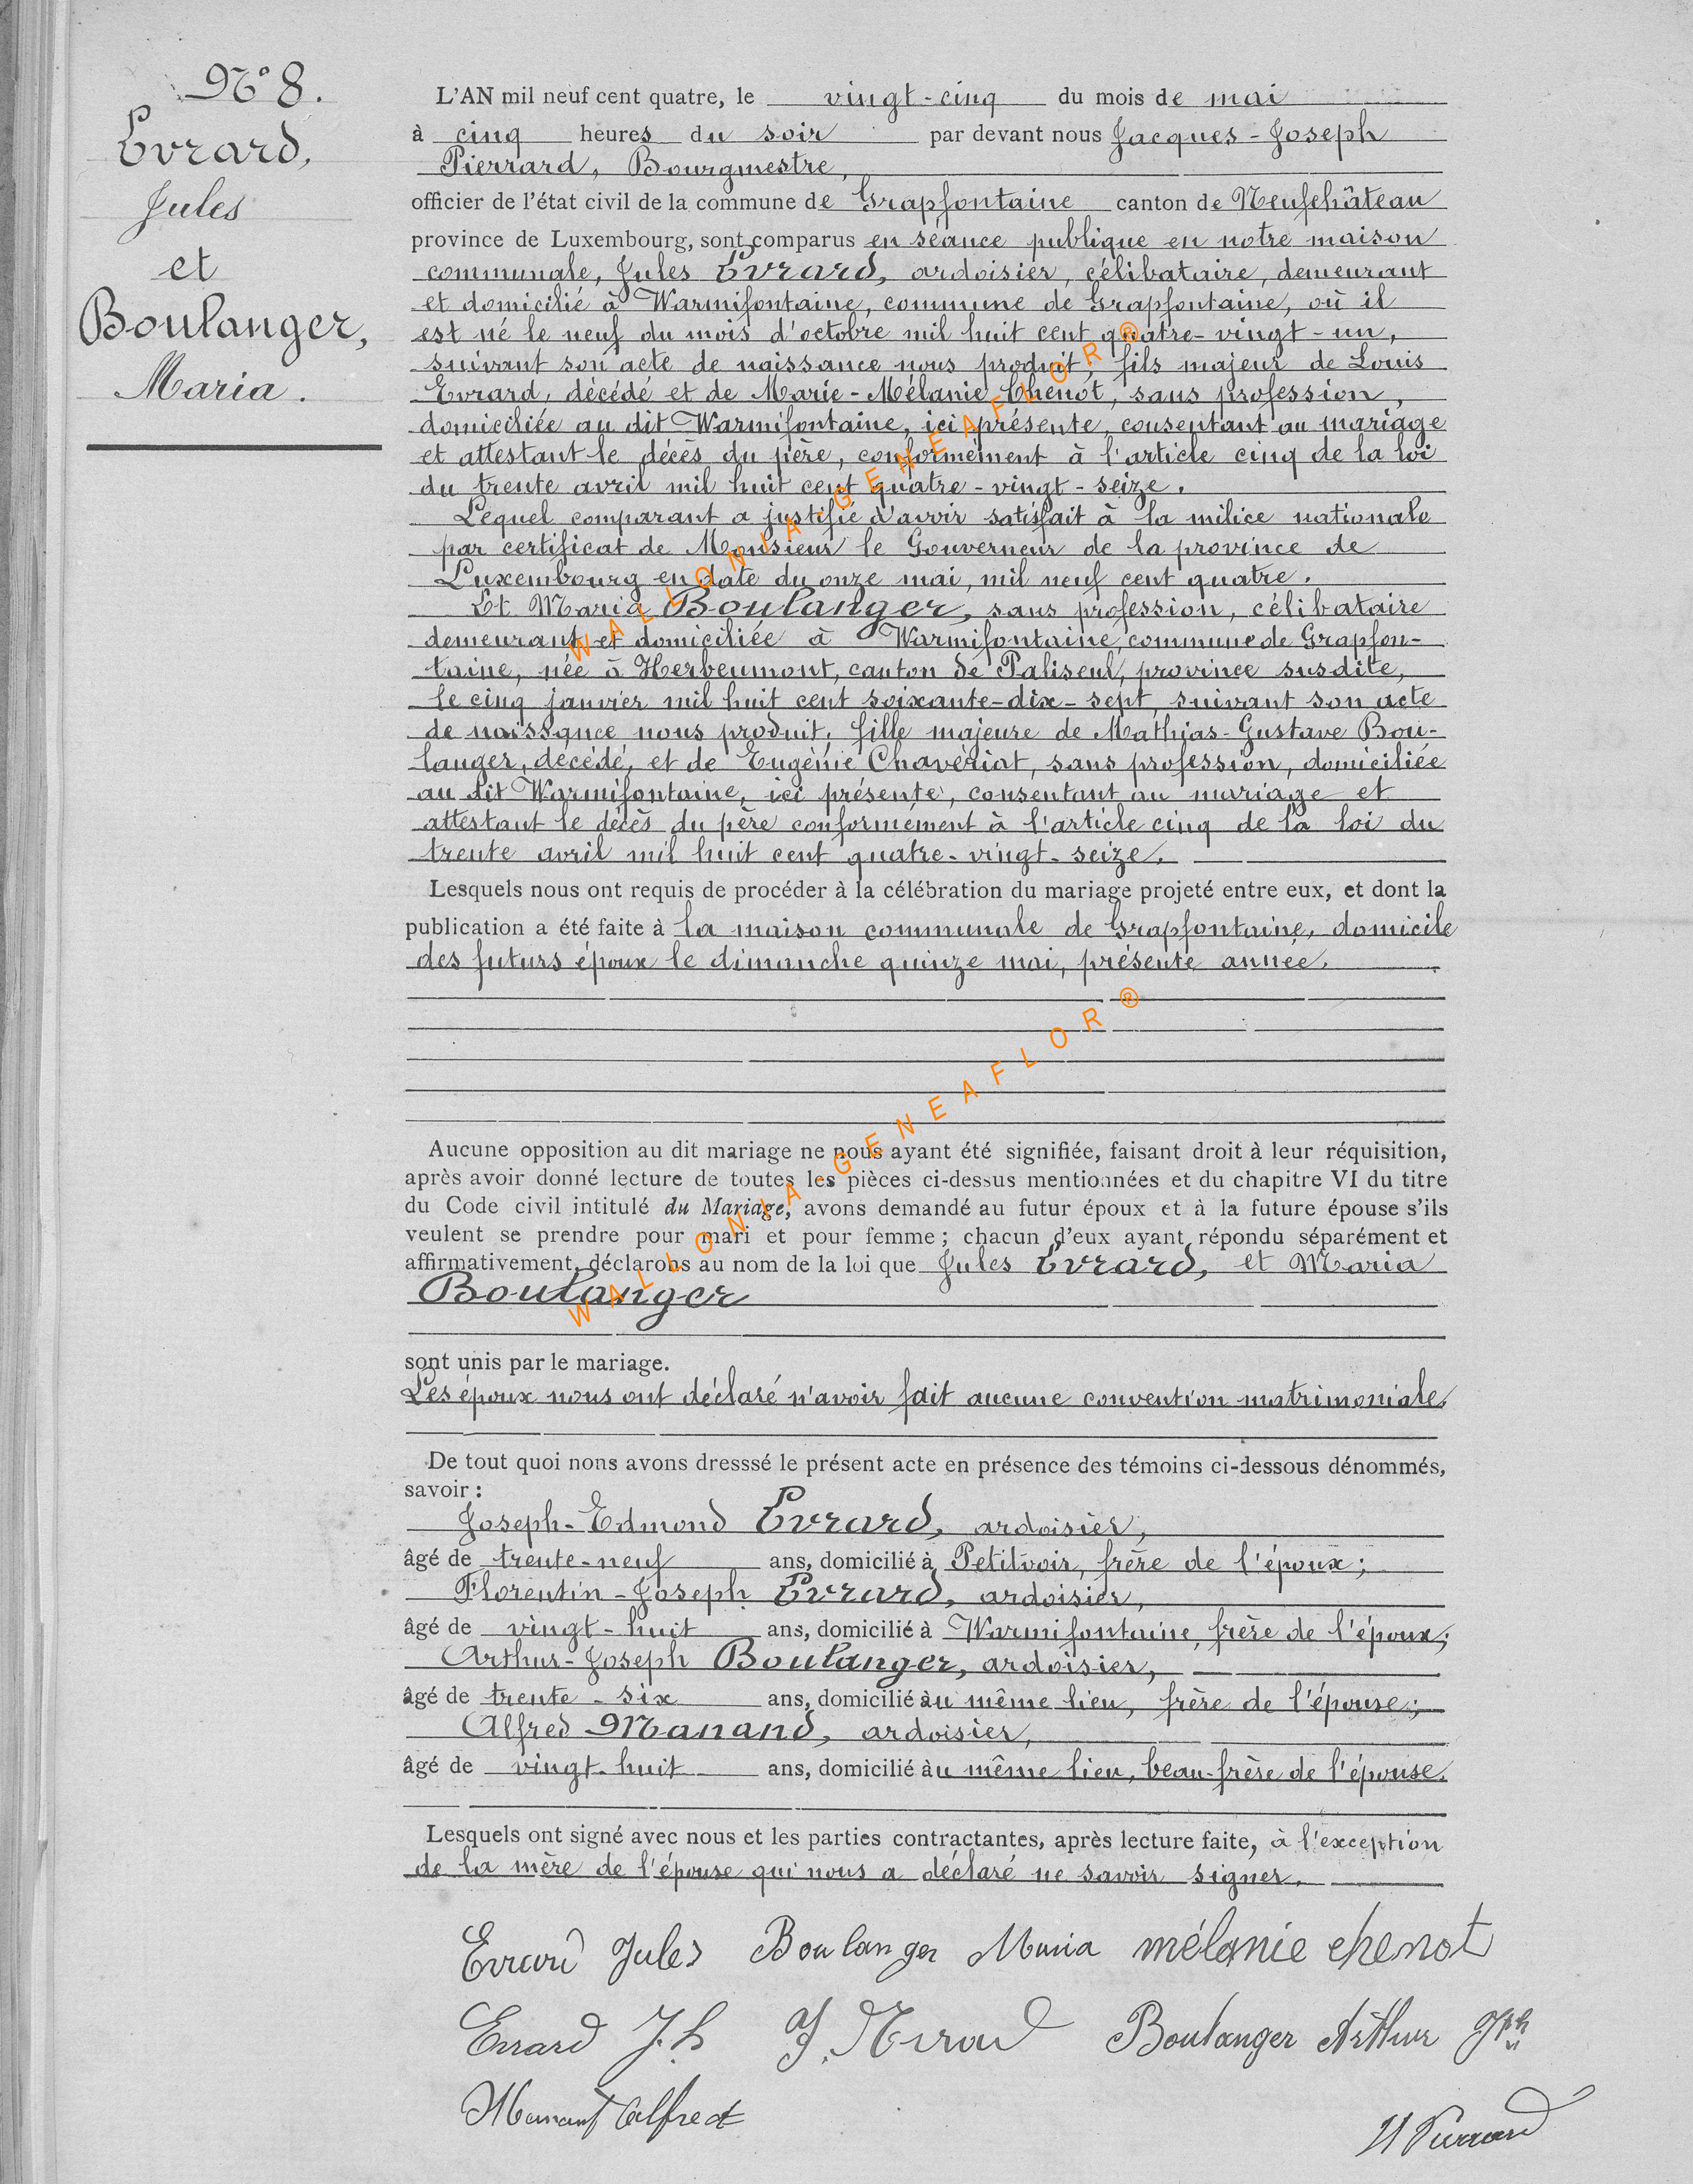 N° 8.
Evrard,
Jules
et
Boulanger,
Maria.
L'AN mil neuf cent quatre, le vingt-cinq du mois de mai
à cinq heures du soir par devant nous Jacques-Joseph
Pierrard, Bourgmestre,
officier de l'état civil de la commune de Grapfontaine canton de Neufchâteau
province de Luxembourg, sont comparus en séance publique en notre maison
communale, Jules Evrard, ardoisier, célibataire, demeurant
et domicilié à Warmifontaine, commune de Grapfontaine, où il
est né le neuf du mois d'octobre mil huit cent quatre-vingt-un,
suivant son acte de naissance nous produit, fils majeur de Louis
Evrard, décédé et de Marie-Mélanie Chenot, sans profession,
domiciliée au dit Warmifontaine, ici présente, consentant au mariage
et attestant le décès du père, conformément à l'article cinq de la loi
du trente avril mil huit cent quatre-vingt-seize.
Lequel comparant a justifié d'avoir satisfait à la milice nationale
par certificat de Monsieur le Gouverneur de la province de
Luxembourg en date du onze mai, mil neuf cent quatre.
Et Maria Boulanger, sans profession, célibataire
demeurant et domiciliée à Warmifontaine, commune de Grapfon-
taine, née à Herbeumont, canton de Paliseul, province susdite,
le cinq janvier mil huit cent soixante-dix-sept, suivant son acte
de naissance nous produit, fille majeure de Mathias-Gustave Bou-
langer, décédé, et de Eugénie Chavériat, sans profession, domiciliée
au dit Warmifontaine, ici présente, consentant au mariage et
attestant le décès du père conformément à l'article cinq de la loi du
trente avril mil huit cent quatre-vingt-seize.
Lesquels nous ont requis de procéder à la célébration du mariage projeté entre eux, et dont la
publication a été faite à la maison communale de Grapfontaine, domicile
des futurs époux le dimanche quinze mai, présente année.
WALLONIA-GENEAFLOR®
WALLONIA-GENEAFLOR®
Aucune opposition au dit mariage ne nous ayant été signifiée, faisant droit à leur réquisition,
après avoir donné lecture de toutes les pièces ci-dessus mentionnées et du chapitre VI du titre
du Code civil intitulé du Mariage, avons demandé au futur époux et à la future épouse s'ils
veulent se prendre pour mari et pour femme ; chacun d'eux ayant répondu séparément et
affirmativement, déclarons au nom de la loi que Jules Evrard, et Maria
Boulanger
sont unis par le mariage.
Les époux nous ont déclaré n'avoir fait aucune convention matrimoniale.
De tout quoi nons avons dresssé le présent acte en présence des témoins ci-dessous dénommés,
savoir :
Joseph-Edmond Evrard, ardoisier,
âgé de trente-neuf ans, domicilié à Petitvoir, frère de l'époux ;
Florentin-Joseph Evrard, ardoisier,
âgé de vingt-huit ans, domicilié à Warmifontaine, frère de l'époux ;
Arthur-Joseph Boulanger, ardoisier,
âgé de trente-six ans, domicilié au même lieu, frère de l'épouse ;
Alfred Manand, ardoisier,
âgé de vingt-huit ans, domicilié au même lieu, beau-frère de l'épouse.
Lesquels ont signé avec nous et les parties contractantes, après lecture faite, à l'exception
de la mère de l'épouse qui nous a déclaré ne savoir signer.
Evrard Jules Boulanger Maria mélanie chenot
Evrard J. Boulanger Arthur Jph
Manant Alfred
Pierrard